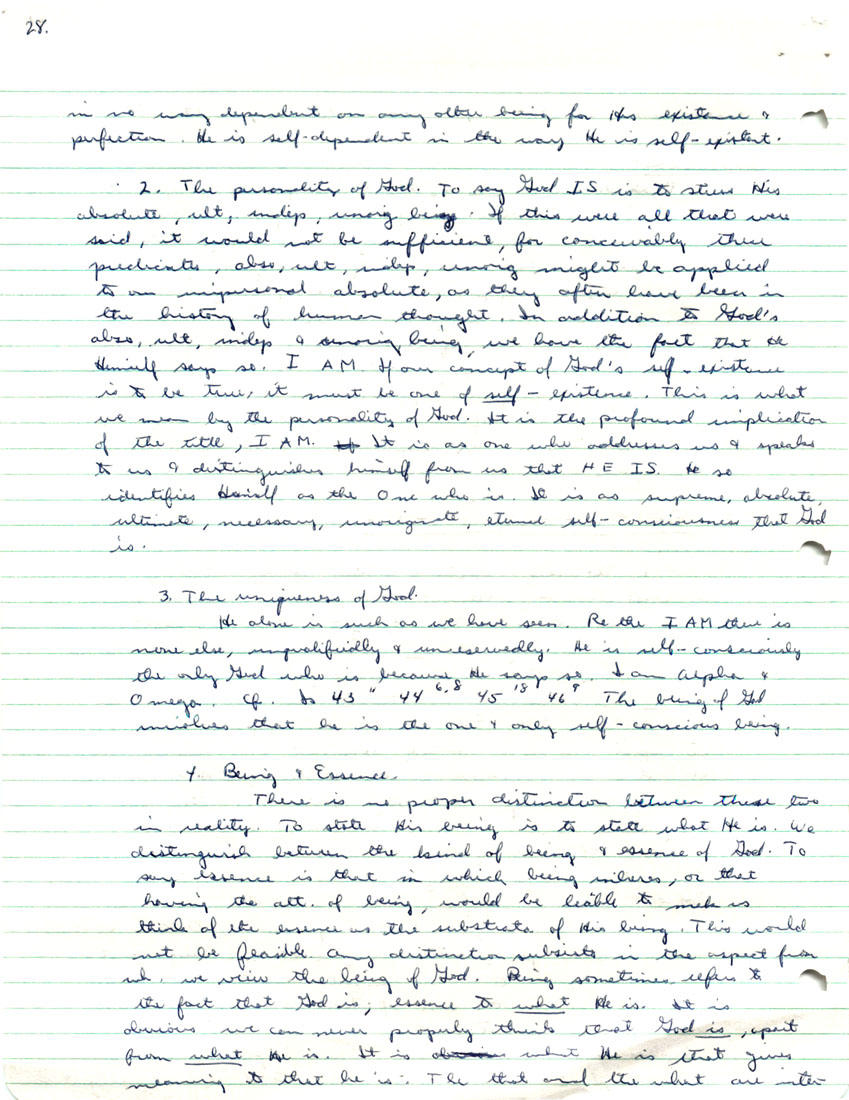 28.
in no way dependent on any other being for His existence &
perfection. He is self-dependent in the way He is self-existent.
2. The personality of God. To say God IS is to stress His
absolute, ult, indep, unorig being. If this were all that were
said, it would not be sufficient, for conceivably these
predicates, abso, ult, indep, unorig might be applied
to an impersonal absolute, as they often have been in
the history of human thought. In addition to God's
abso, ult, indep & unorig being, we have the fact that He
Himself says so. I AM. If our concept of God's self-existence
is to be true, it must be one of self-existence. This is what
we mean by the personality of God. It is the profound implication
of the title, I AM. It is as one who addresses us & speaks
to us & distinguishes himself from us that HE IS. He so
identifies Himself as the One who is. It is as supreme, absolute,
ultimate, necessary, unoriginate, eternal self-consciousness that God
is.
3. The uniqueness of God.
He alone is such as we have seen. Re the I AM there is
none else, unqualifiedly & unreservedly. He is self-consciously
the only God who is because He says so. I am Alpha &
Omega. Cf. Is 43 11 44 6,8 45 18 46 9 The being of God
involves that he is the one & only self-conscious being.
4. Being & Essence.
There is no proper distinction between these two
in reality. To state His being is to state what He is. We
distinguish between the kind of being & essence of God. To
say essence is that in which being inheres, or that
having the att. of being, would be liable to make us
think of the essence as the substrata of His being. This would
not be feasible. Any distinction subsists in the aspect from
wh. we view the being of God. Being sometimes refers to
the fact that God is; essence to what He is. It is
obvious we can never properly think that God is, apart
from what He is. It is what He is that gives
meaning to that he is. The that and the what are inter-